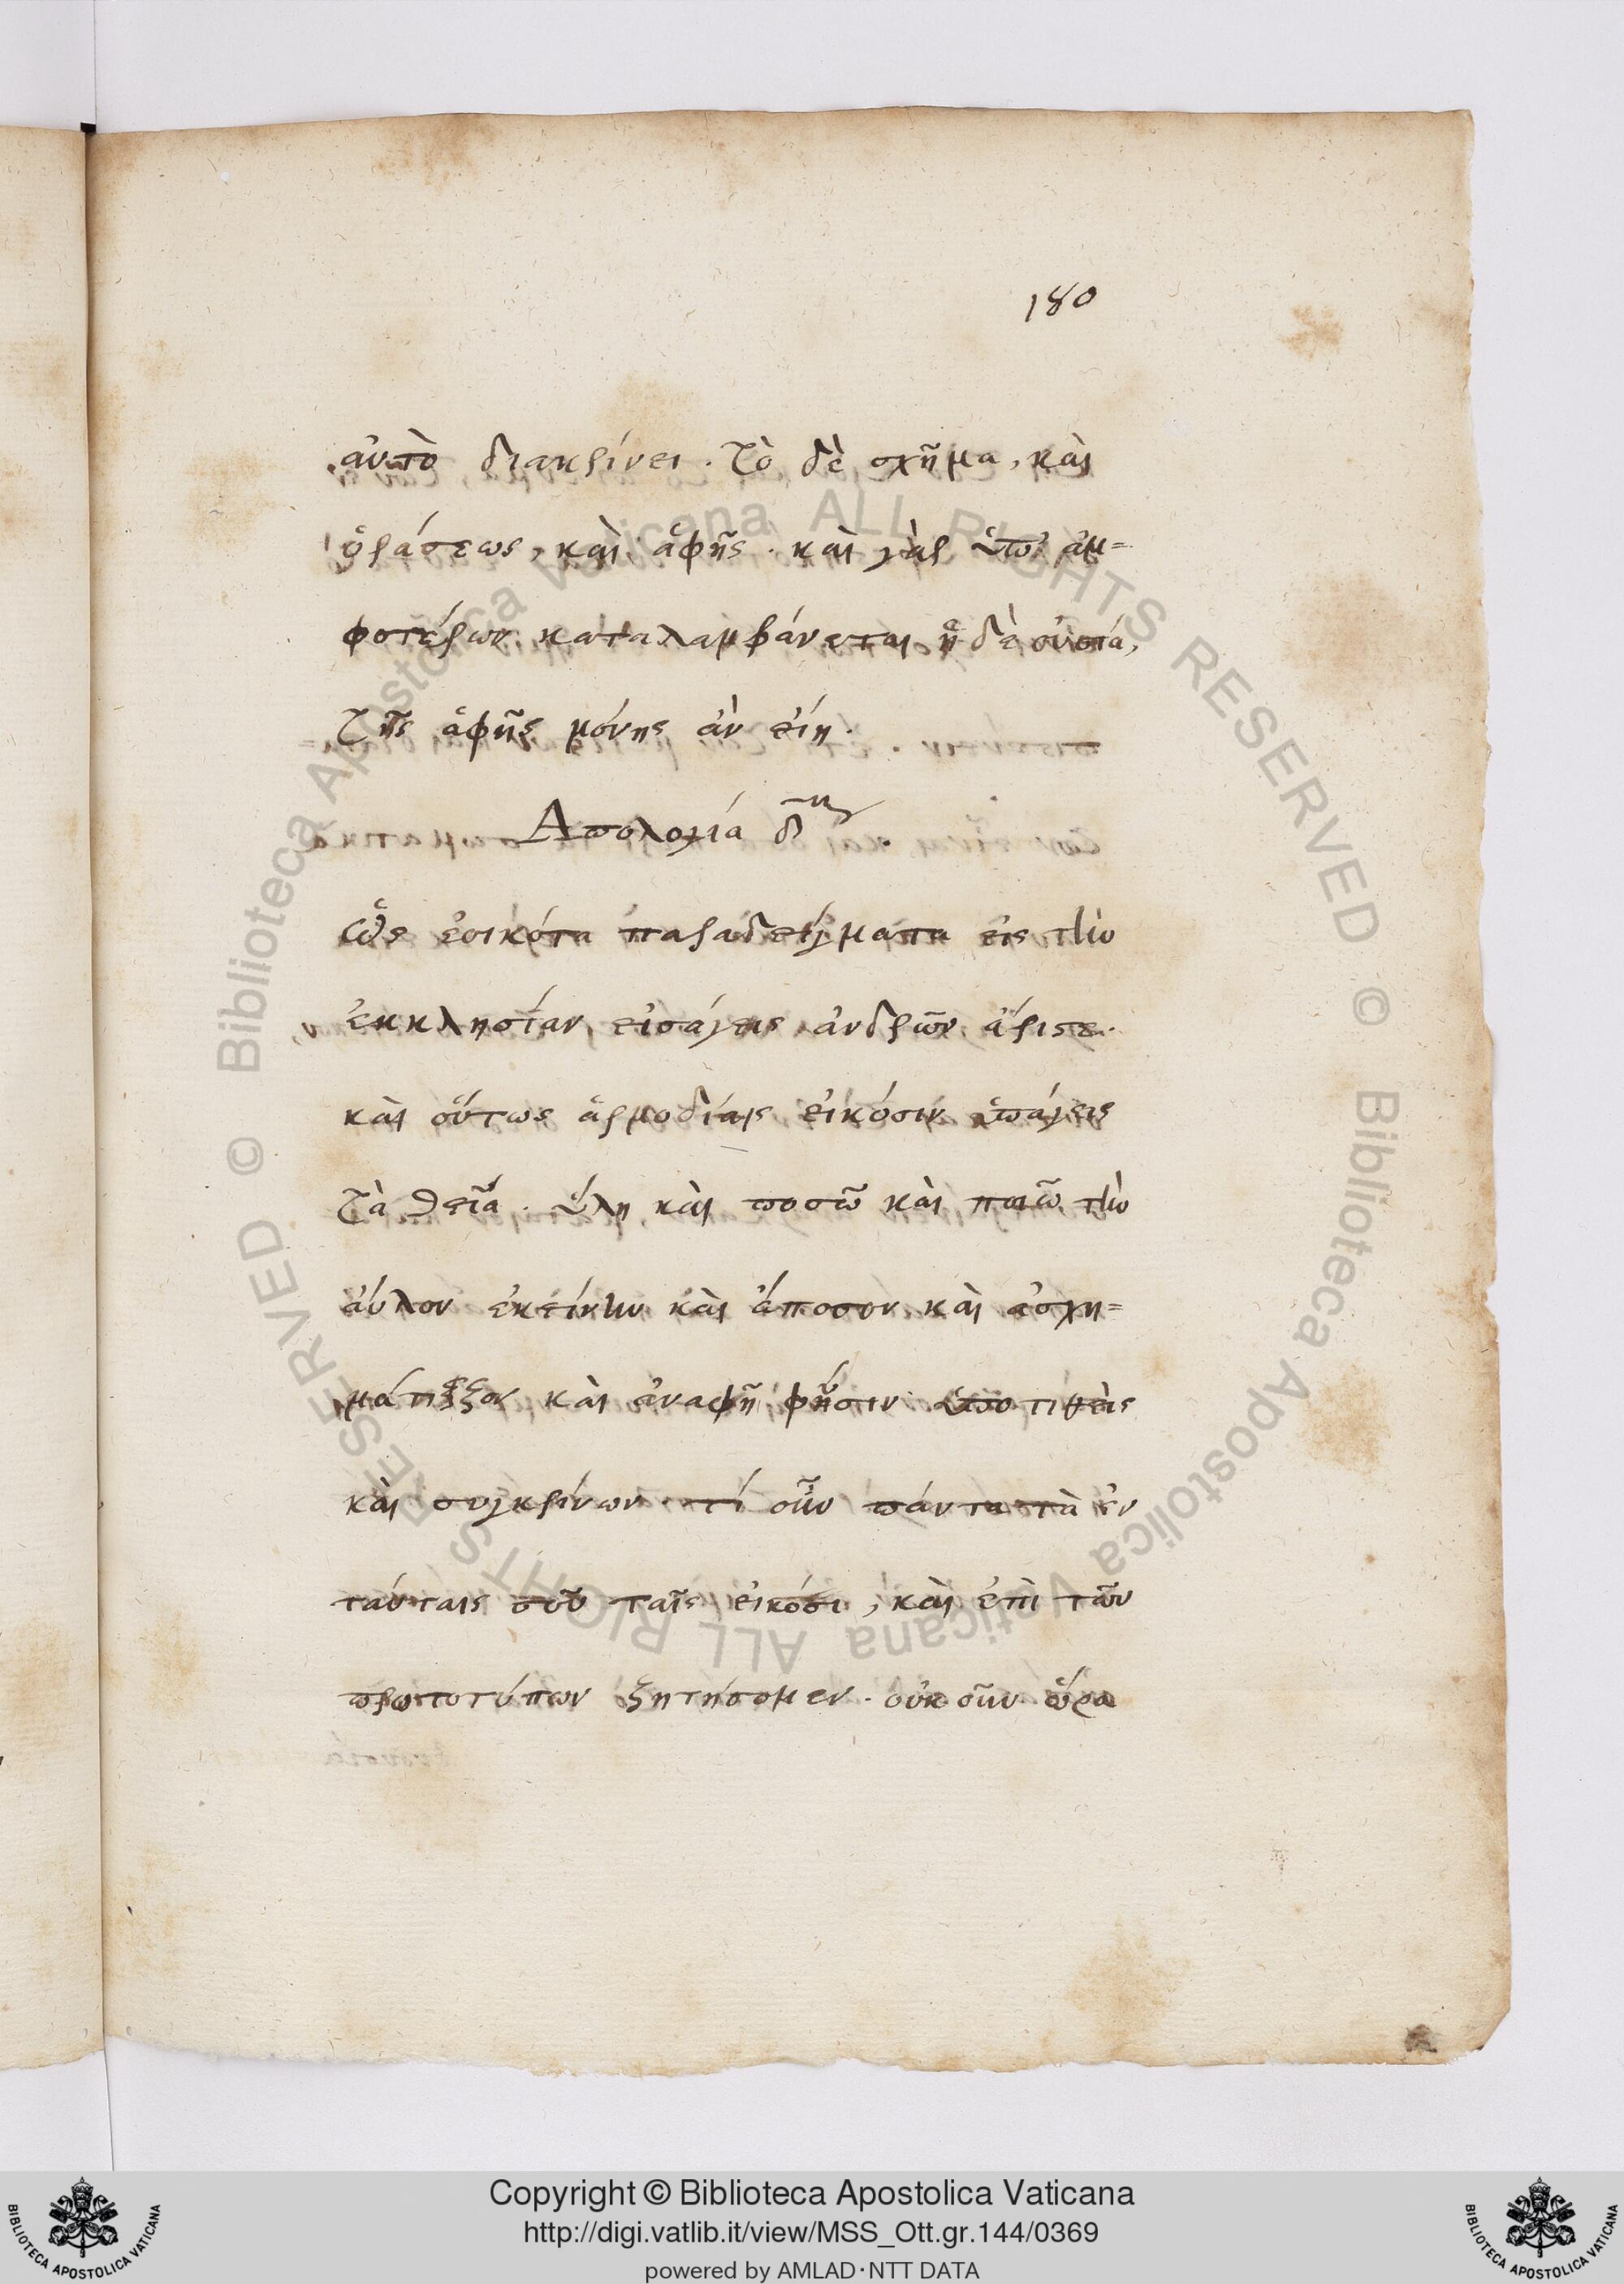 180
αὐτὸ διακρίνει. Τὸ δὲ σχῆμα, καὶ
ὁράσεως, καὶ ἁφῆς. καὶ γὰρ ὑπ' ἀμ=
φοτέρων καταλαμβάνεται ἡ δὲ οὐσία,
Τῆς ἁφῆς μόνης ἂν εἴη.
Ἀπολογία
Ὡς ἐοικότα παραδείγματα εἰς τὴν
ἐκκλησίαν εἰσάγεις ἀνδρῶν ἄριστε.
καὶ οὕτως ἁρμοδίαις εἰκόσιν ὑπάγεις
Τὰ θεῖα. ὕλη καὶ ποσῶ καὶ ποιῶ τὴν
ἄυλον ἐκείνην καὶ ἄποσον καὶ ἀσχη=
καὶ ἀναφῆ φύσιν ὑποτιθεὶς
καὶ συγκρίνων τί οὖν πάντα τὰ ἐν
ταύταις σοῦ ταῖς εἰκόσι, καὶ ἐπὶ τῶν
πρωτοτύπων ζητήσομεν. οὐκοῦν ὅρα
Biblioteca Apostolica Vaticana ALL RIGHTS RESERVED © Biblioteca Apostolica Vaticana ALL RIGHTS RESERVED ©
Copyright © Biblioteca Apostolica Vaticana
http://digi.vatlib.it/view/MSS_Ott.gr.144/0369
powered by AMLAD·NTT DATA
BIBLIOTECA APOSTOLICA VATICANA
BIBLIOTECA APOSTOLICA VATICANA